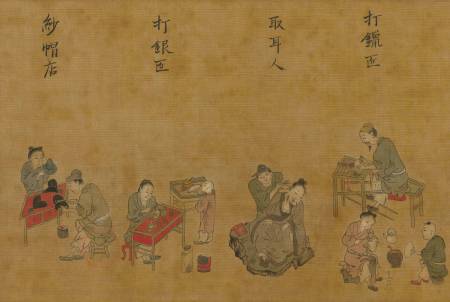 打鑞匠
取耳人
打銀匠
紗帽店